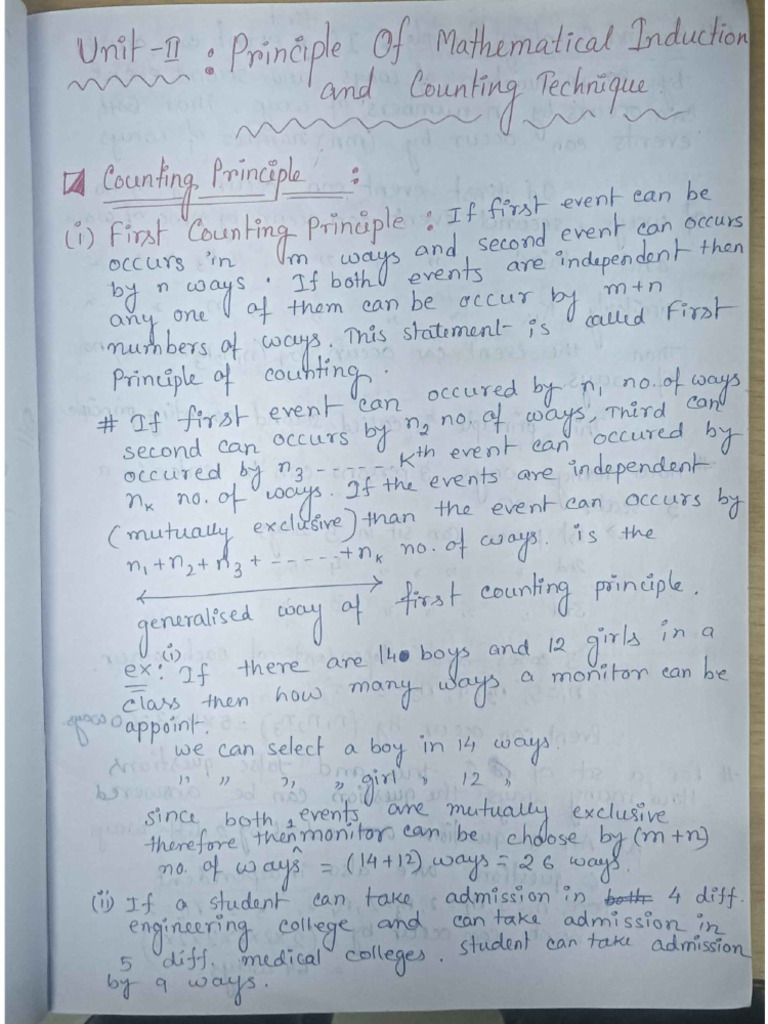 Unit-II : Principle Of Mathematical Induction
and Counting Technique
Counting Principle :
(i) First Counting Principle : If first event can be
occurs in m ways and second event can occurs
by n ways. If both events are independent then
any one of them can be occur by m+n
numbers of ways. This statement is called First
Principle of counting.
# If first event can occured by n₁ no. of ways
second can occurs by n₂ no. of ways. Third can
occured by n₃ ------ Kth event can occured by
nₖ no. of ways. If the events are independent
(mutually exclusive) than the event can occurs by
n₁+n₂+n₃+-----+nₖ no. of ways. is the
generalised way of first counting principle.
ex: (i) If there are 14 boys and 12 girls in a
class then how many ways a monitor can be
appoint.
we can select a boy in 14 ways.
" " " " girl " 12 "
since both events are mutually exclusive
therefore then monitor can be choose by (m+n)
no. of ways = (14+12) ways = 26 ways.
(ii) If a student can take admission in both 4 diff.
engineering college and can take admission in
5 diff. medical colleges. student can take admission
by 9 ways.